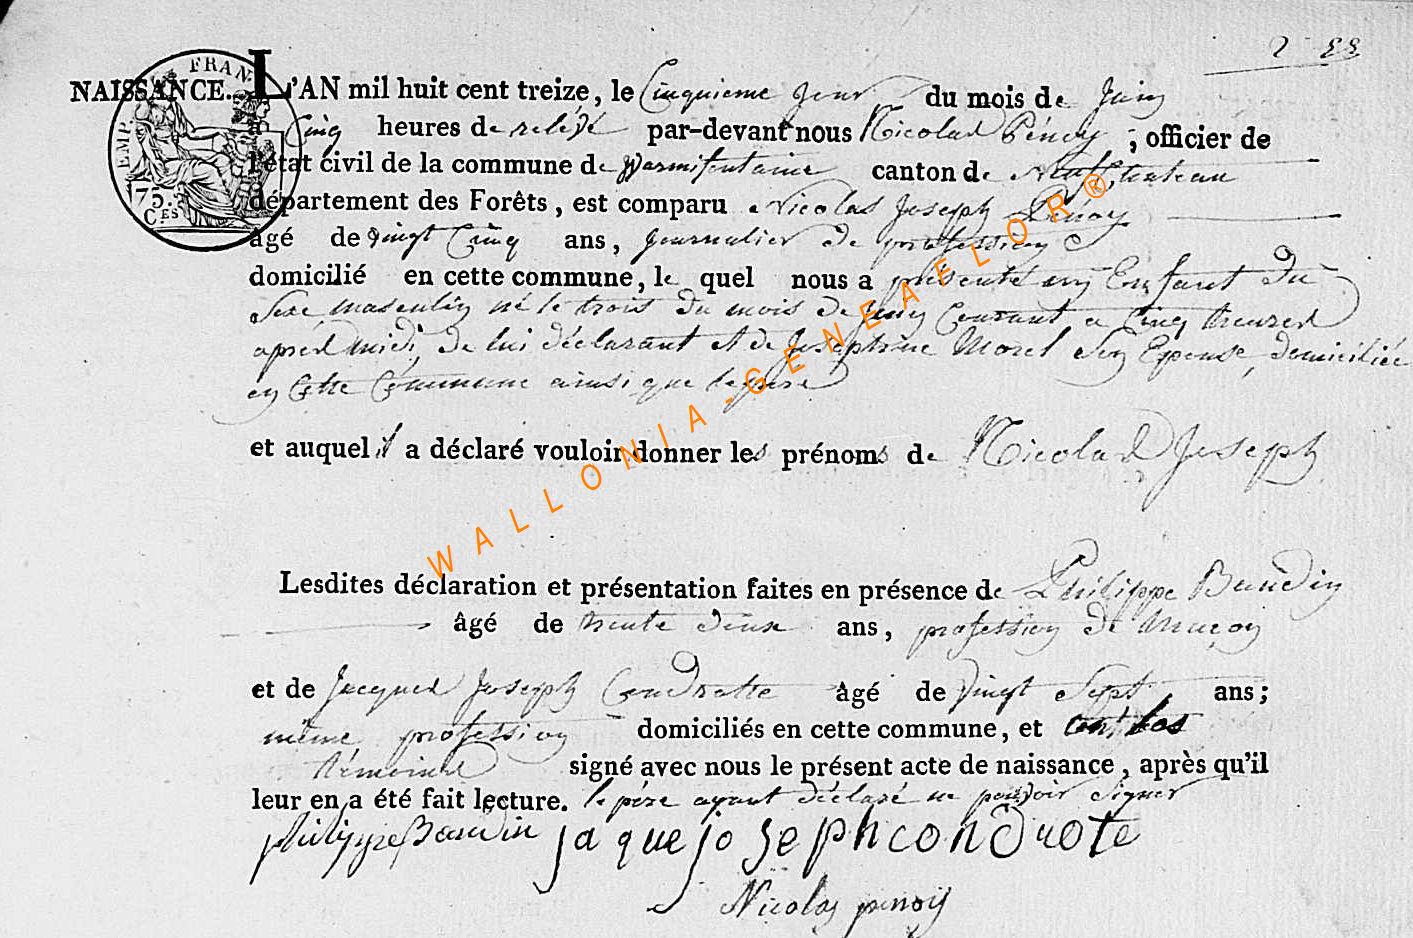 NAISSANCE. L'AN mil huit cent treize, le Cinquieme jour du mois de Juin
à Cinq heures de relevé par-devant nous Nicolas Pénoy, officier de
l'état civil de la commune de Warmifontaine canton de Neufchateau
département des Forêts, est comparu Nicolas Joseph Pénoy
âgé de vingt Cinq ans, journalier de profession
domicilié en cette commune, le quel nous a présenté un Enfant du
Sexe masculin né le trois du mois de juin Courant a Cinq heures
apres midi, de lui déclarant et de Josephine Morel son Epouse, domiciliée
en Cette Commune ainsi que le pere
et auquel il a déclaré vouloir donner les prénoms de Nicolas Joseph
Lesdites déclaration et présentation faites en présence de Philippe Baudin
âgé de trente deux ans, profession de Maçon
et de Jacques Joseph Condrotte âgé de vingt Sept ans;
même profession domiciliés en cette commune, et ont les
témoins signé avec nous le présent acte de naissance, après qu'il
leur en a été fait lecture. le père ayant déclaré ne pouvoir signer
philippe Baudin jaque joseph condrote
Nicolas penoy
EMP. FRAN
75. C.ES
WALLONIA-GENEALOR®